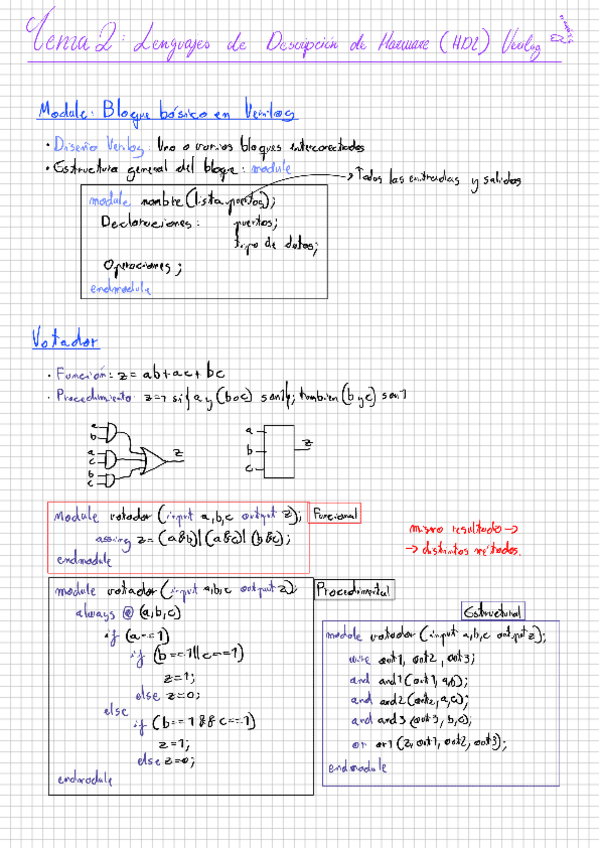 Tema 2: Lenguajes de Descripción de Harware (HDL) Verilog
Module: Bloque básico en Verilog
· Diseño Verilog: Uno o varios bloques interconectados
· Estructura general del bloque: module
→ Todos las entradas y salidas
module nombre (lista puertos);
Declaraciones: puertos;
tipo de datos;
Operaciones;
endmodule
Votador
· Función: z = ab + ac + bc
· Procedimiento: z=1 si {a y (b o c) son 1}; tambien (b y c) son 1
a
b
a
c
b
c
z
a
b
c
z
module votador (input a,b,c output z);
Funcional
assing z = (a&b)|(a&c)|(b&c);
endmodule
mismo resultado →
→ distintos métodos.
module votador (input a,b,c output z);
Procedimental
always @ (a,b,c)
if (a==1)
if (b==1||c==1)
z=1;
else z=0;
else
if (b==1 && c==1)
z=1;
else z=0;
endmodule
Estructural
module votador (input a,b,c output z);
wire out1, out2, out3;
and and1 (out1, a,b);
and and2 (out2, a,c);
and and3 (out3, b,c);
or or1 (z, out1, out2, out3);
endmodule